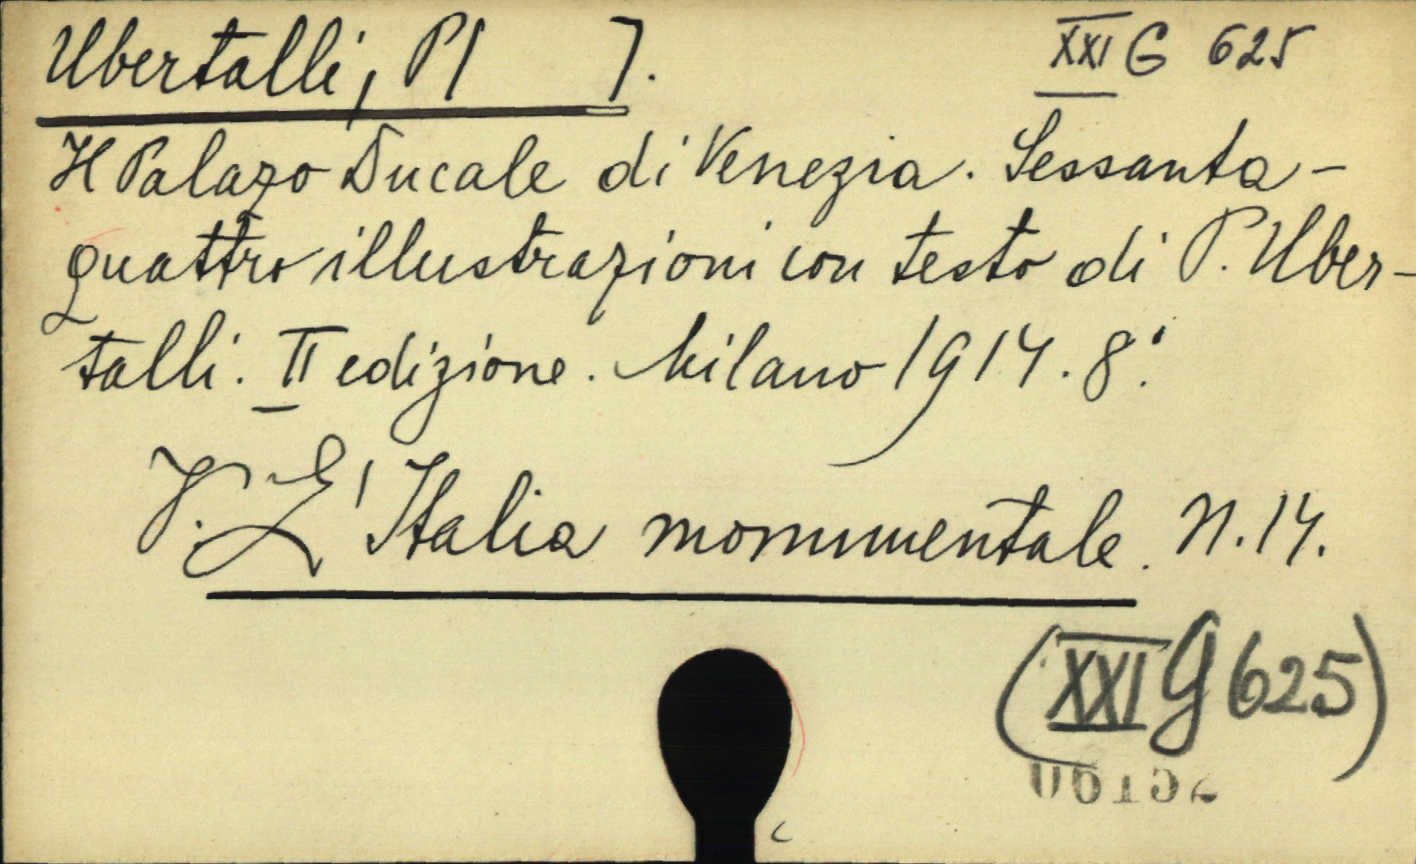 Ubertalli, P[ ].
XXI G 625
Il Palazo Ducale di Venezia. Sessanta-
quattro illustrazioni con testo di P. Uber-
talli. II edizione. Milano 1914. 8°.
V. L'Italia monumentale. N. 14.
(XXI G 625)